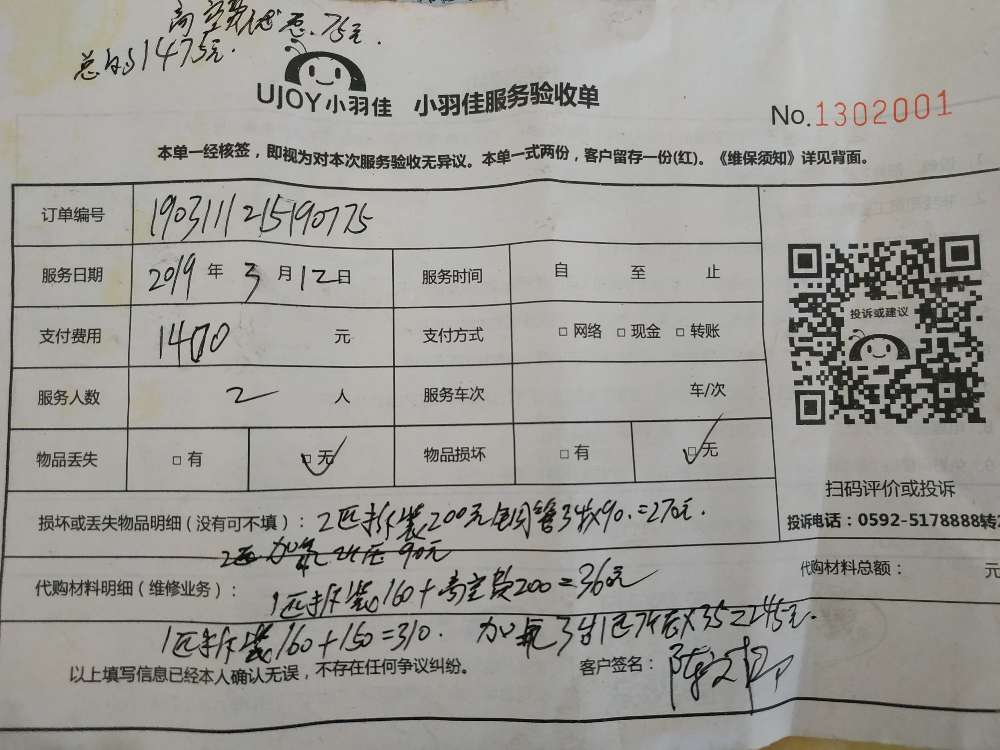 总的1475元.
UJOY小羽佳 小羽佳服务验收单
No.1302001
本单一经核签，即视为对本次服务验收无异议。本单一式两份，客户留存一份(红)。《维保须知》详见背面。
订单编号 190311121519 0775
服务日期 2019 年 3 月 12 日 服务时间 自 至 止
支付费用 1400 元 支付方式 □ 网络 □ 现金 □ 转账
投诉或建议
服务人数 2 人 服务车次 车/次
物品丢失 □ 有 □ 无 物品损坏 □ 有 □ 无
扫码评价或投诉
损坏或丢失物品明细（没有可不填）：2匹拆装200元铜管3米x90.=270元.
投诉电话：0592-5178888转2
代购材料明细（维修业务）：
1匹拆装160+高空费200=36元
代购材料总额： 元
1匹拆装160+150=310. 加氟3台 x35=245元.
以上填写信息已经本人确认无误，不存在任何争议纠纷。 客户签名：